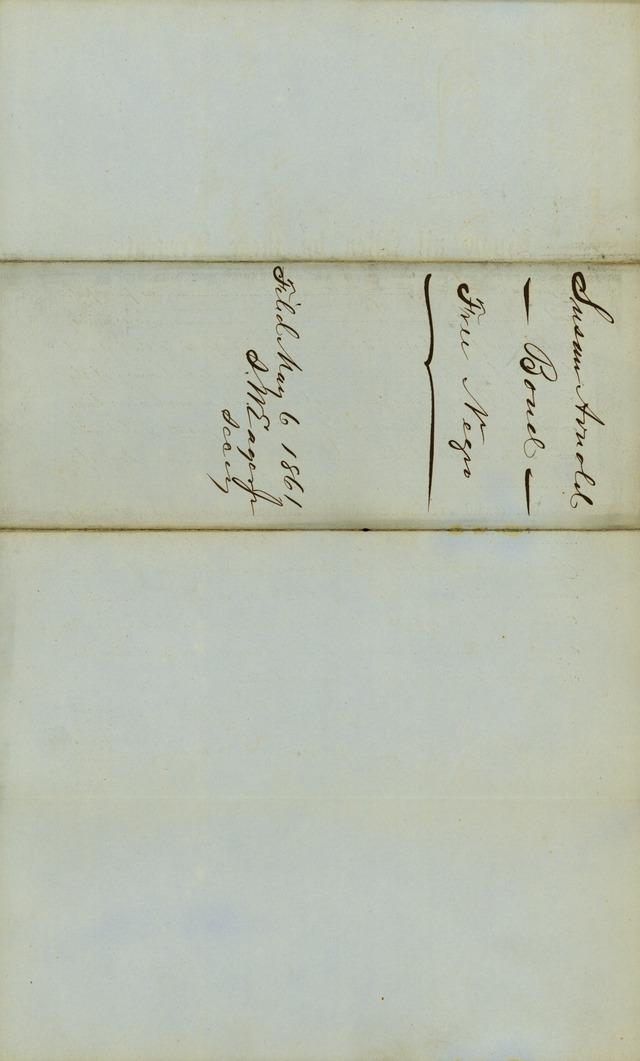 Susan Arnold
— Bond —
Free Negro
Filed May 6 1861
S. W. Eager Jr